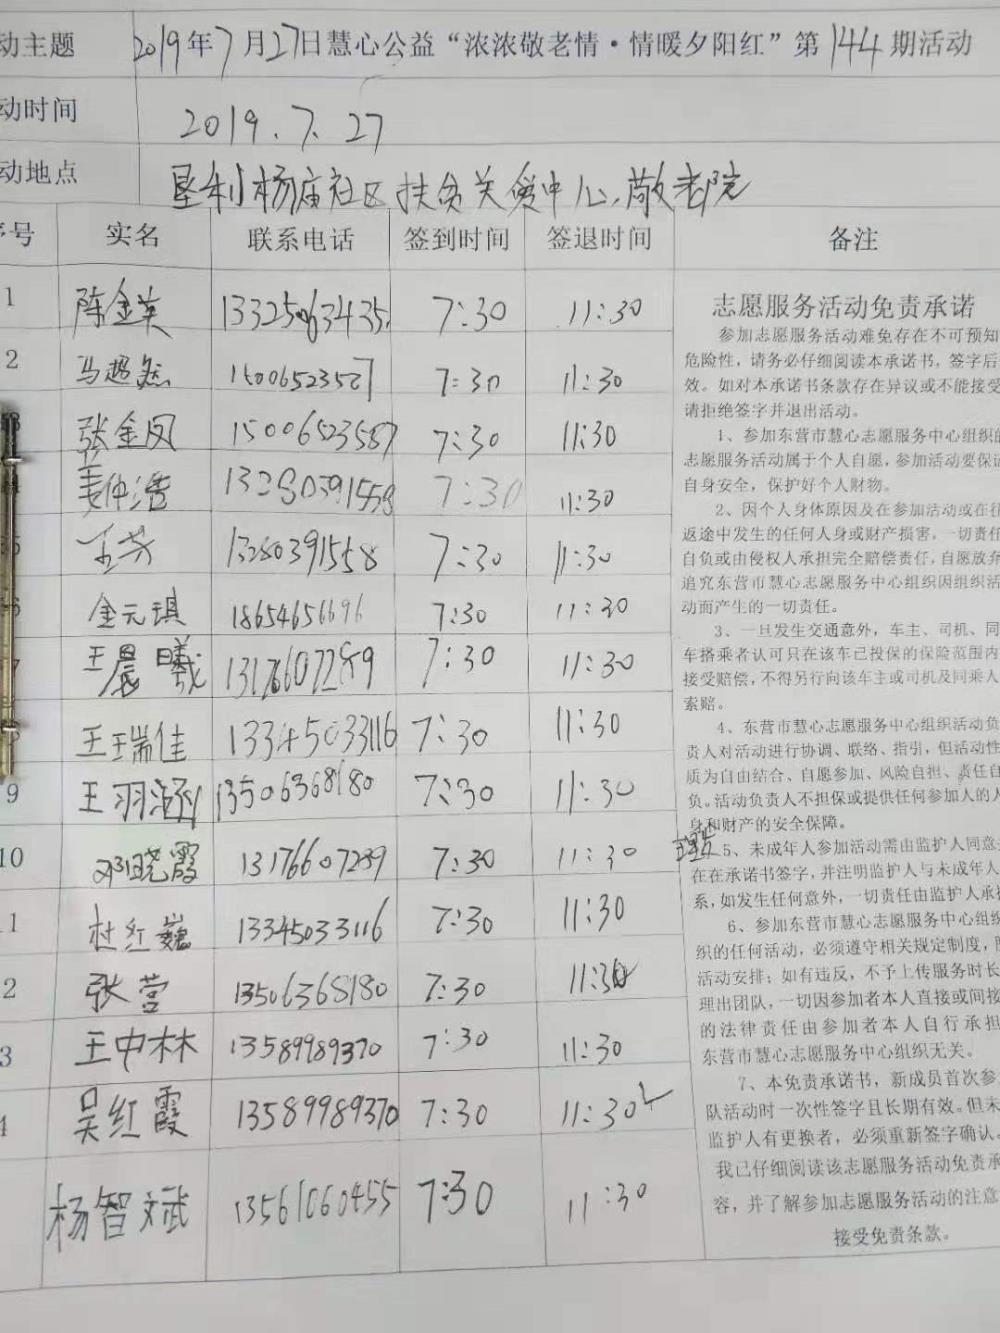 动主题 2019年7月27日慧心公益“浓浓敬老情·情暖夕阳红”第144期活动
动时间 2019.7.27
动地点 垦利杨庙社区扶贫关爱中心、敬老院
号 实名 联系电话 签到时间 签退时间 备注
1 陈金英 7:30 11:30
2 马超然 15006523587 7:30 11:30
张金凤 15006523587 7:30 11:30
姜仲浩 13280391558 7:30 11:30
王芳 13280391558 7:30 11:30
金元琪 18654656696 7:30 11:30
王晨曦 13176607289 7:30 11:30
王瑞佳 13345033116 7:30 11:30
9 王羽涵 13506368180 7:30 11:30
10 邓晓霞 13176607289 7:30 11:30
1 杜红巍 13345033116 7:30 11:30
2 张营 13506368180 7:30 11:30
3 王中林 13589989370 7:30 11:30
4 吴红霞 13589989370 7:30 11:30
杨智斌 13561060455 7:30 11:30
志愿服务活动免责承诺
参加志愿服务活动难免存在不可预知
危险性，请务必仔细阅读本承诺书，签字后
效。如对本承诺书条款存在异议或不能接受
请拒绝签字并退出活动。
1、参加东营市慧心志愿服务中心组织的
志愿服务活动属于个人自愿，参加活动要保证
自身安全，保护好个人财物。
2、因个人身体原因及在参加活动或在往
返途中发生的任何人身或财产损害，一切责任
自负或由侵权人承担完全赔偿责任，自愿放弃
追究东营市慧心志愿服务中心组织因组织活
动而产生的一切责任。
3、一旦发生交通意外，车主、司机、同
车搭乘者认可只在该车已投保的保险范围内
接受赔偿，不得另行向该车主或司机及同乘人
索赔。
4、东营市慧心志愿服务中心组织活动负
责人对活动进行协调、联络、指引，但活动性
质为自由结合、自愿参加、风险自担、责任自
负。活动负责人不担保或提供任何参加人的人
身和财产的安全保障。
5、未成年人参加活动需由监护人同意并
在在承诺书签字，并注明监护人与未成年人
系，如发生任何意外，一切责任由监护人承担
6、参加东营市慧心志愿服务中心组织
织的任何活动，必须遵守相关规定制度，
活动安排；如有违反，不予上传服务时长
理出团队，一切因参加者本人直接或间接
的法律责任由参加者本人自行承担
东营市慧心志愿服务中心组织无关。
7、本免责承诺书，新成员首次参
队活动时一次性签字且长期有效。但未
监护人有更换者，必须重新签字确认。
我已仔细阅读该志愿服务活动免责承
容，并了解参加志愿服务活动的注意
接受免责条款。